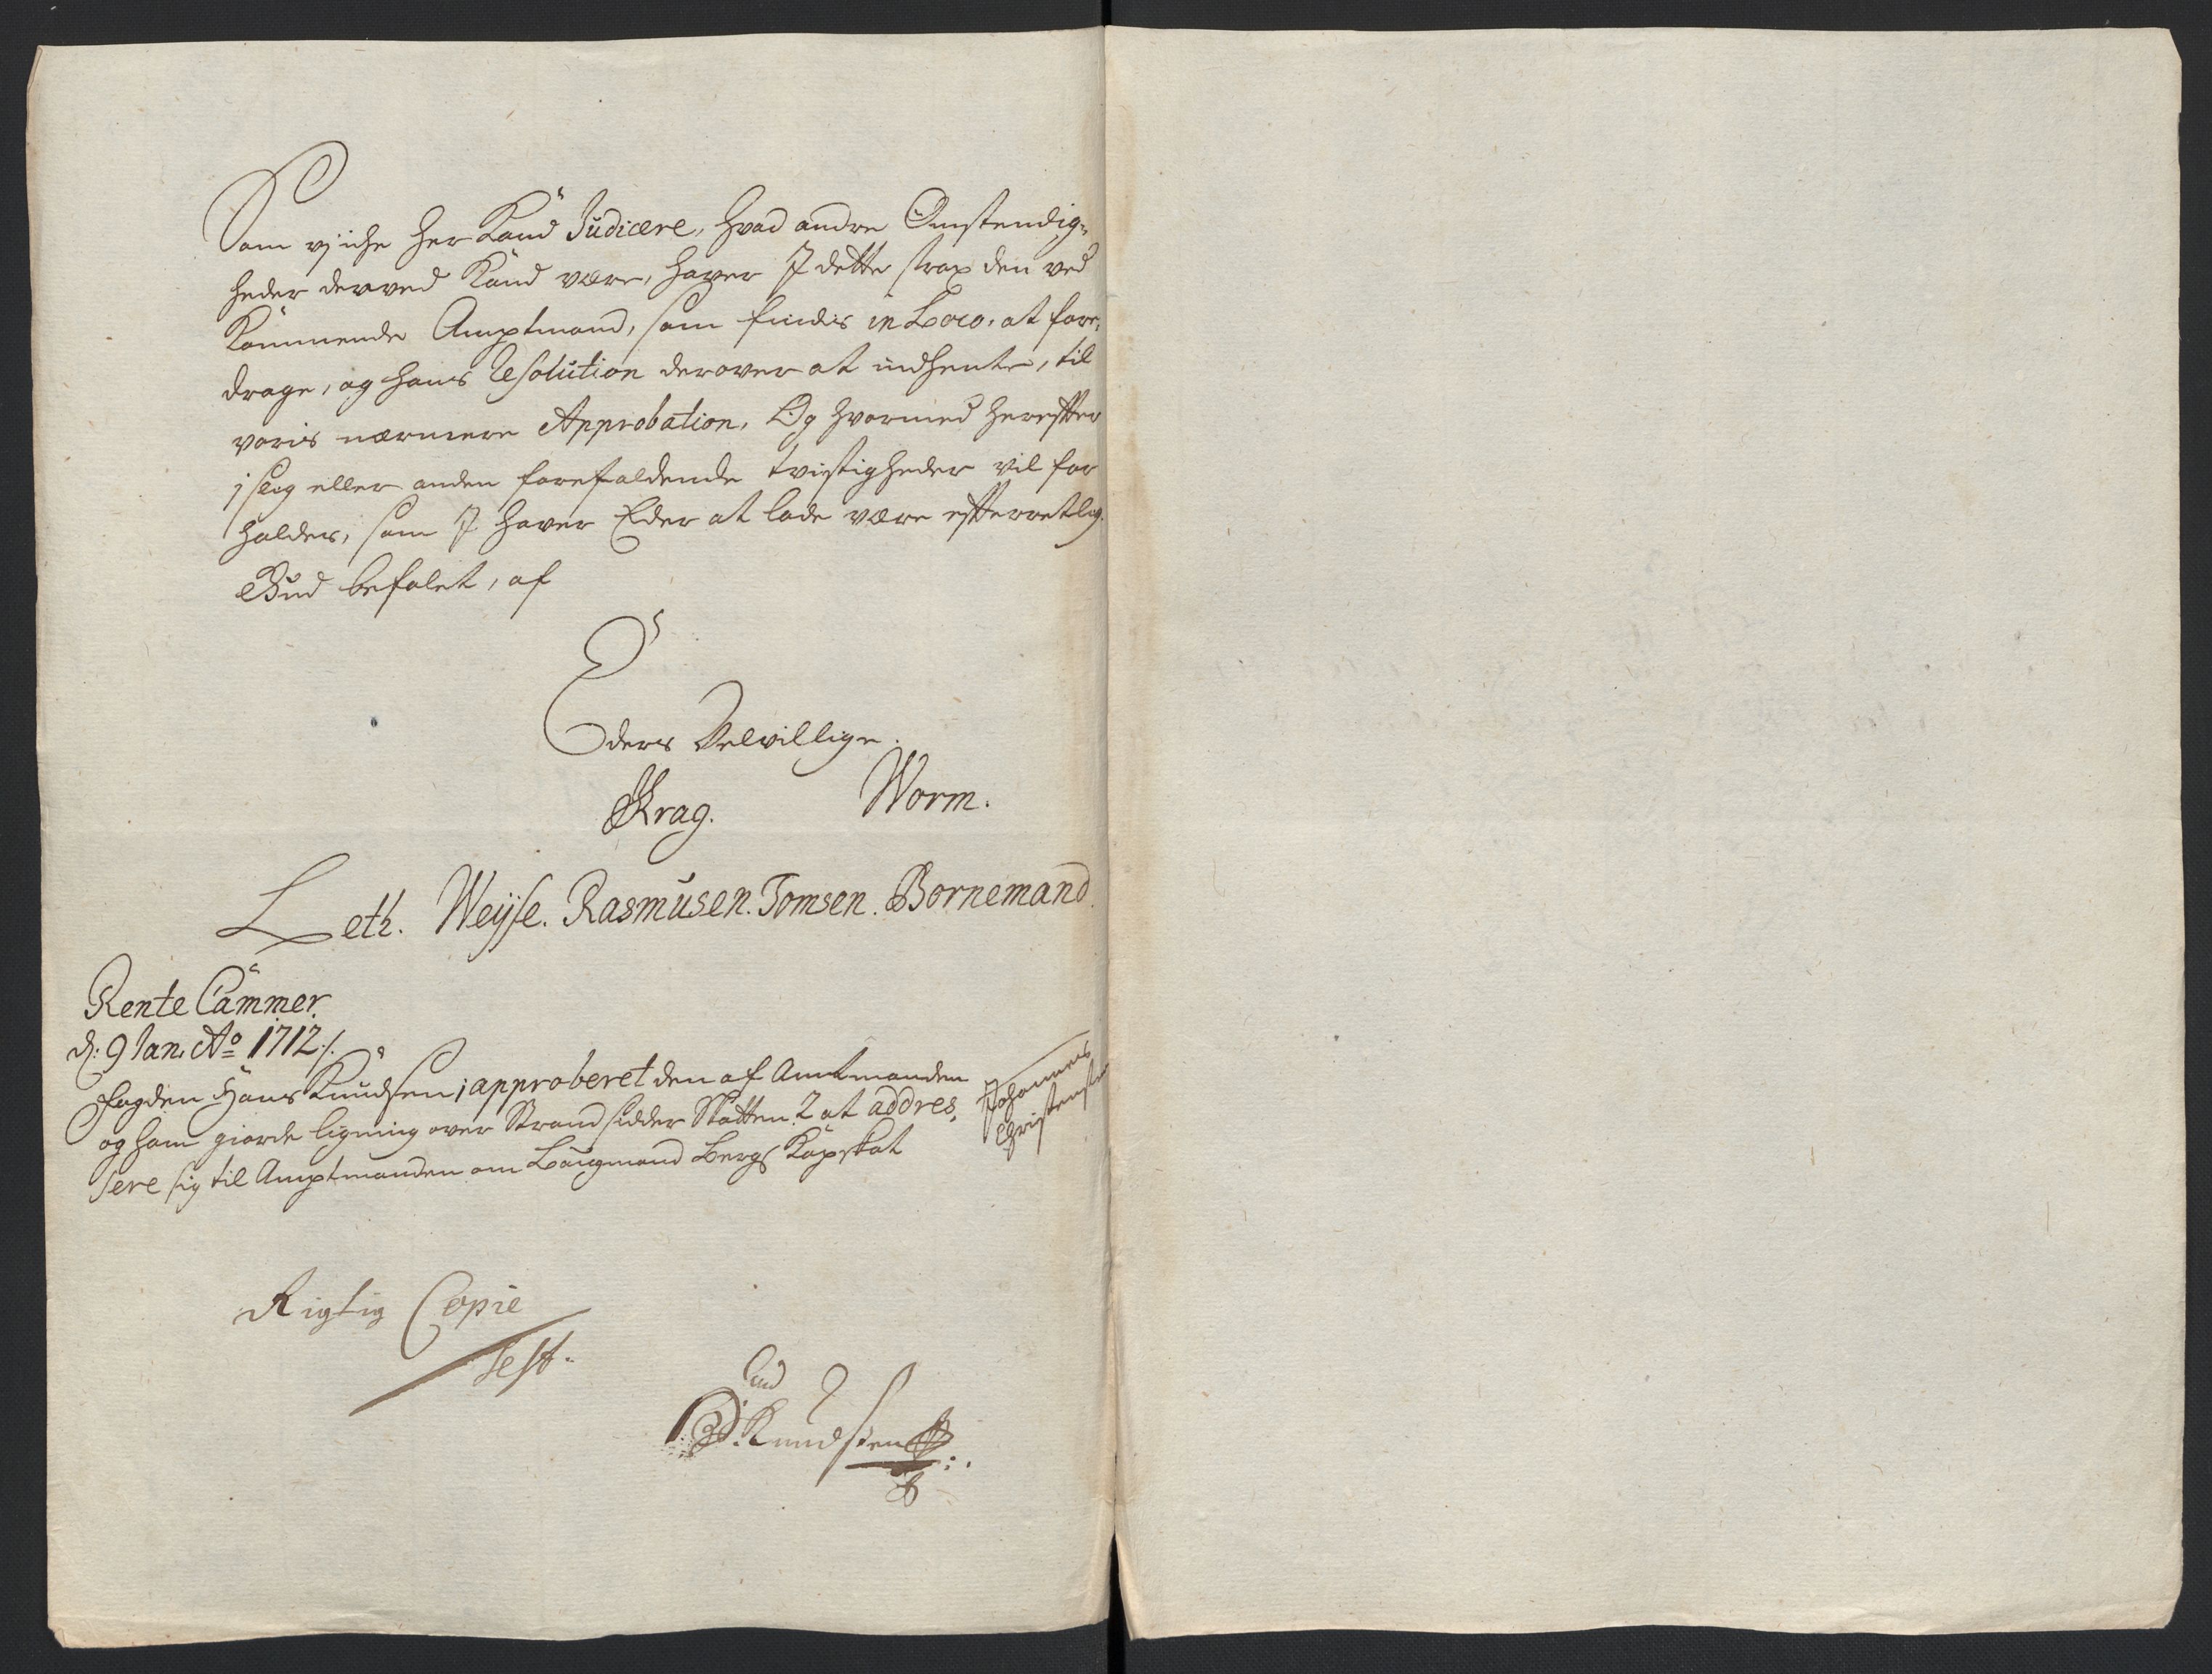 Som vj iche her Kand Judicere, hvad andre Omstendig-
heder derved Kand være, haver I dette strax den ved
Kommende Amptmand, som findis in Loco, at fore-
drage, og hans Resolution derover at indhente, til
voris nærmere Approbation, Og hvormed herefter
j slig eller anden forefaldende tvistigheder vil for
holdes, som I haver Eder at lade være efterretlig.
Gud befalet, af
Eders Velvillige.
Krag. Worm.
Leth. Weyse. Rasmusen. Tomsen. Bornemand.
Rente Cammer
d: 9 Jan. Ao 1712 ./.
Fogden Hans Knudsen, 1 approberet den af Amtmanden
og ham giorde ligning over Strand sidder Skatten. 2 at addres,
sere sig til Amptmanden om Laugmand Bergs Kopskat
Johannes
Christens
Rigtig Copie
Test.
Knudsen